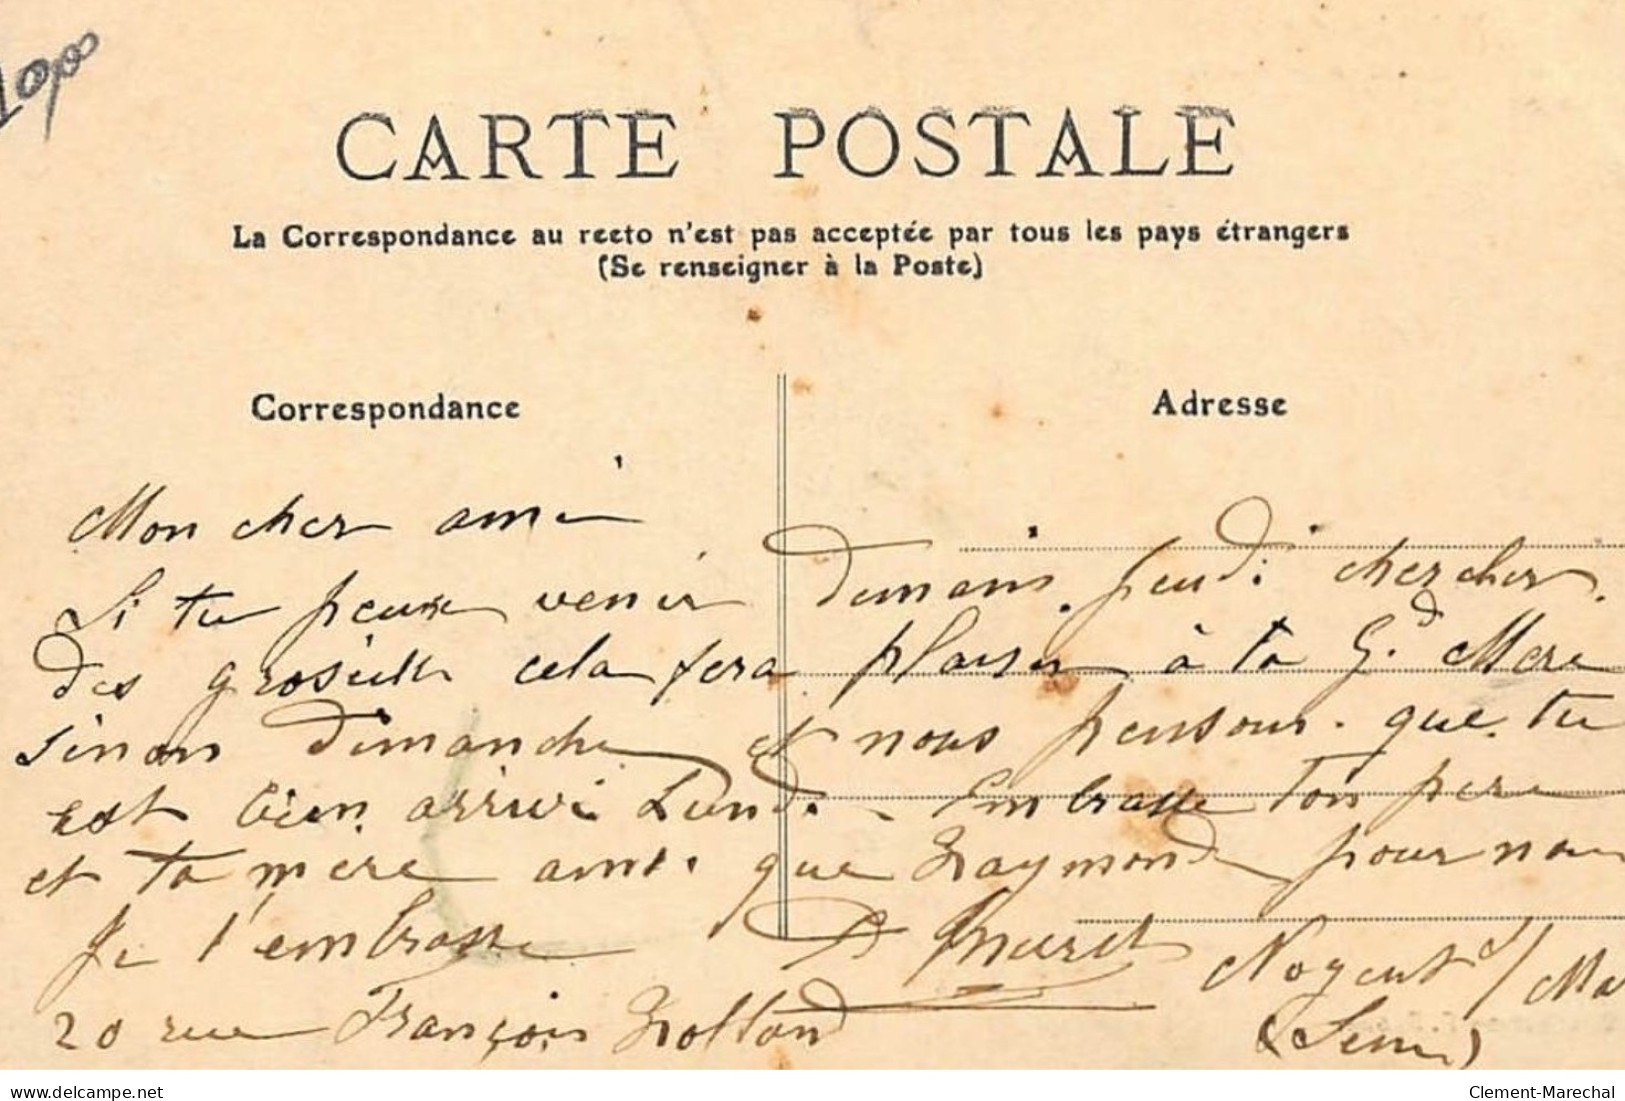 10,00
CARTE POSTALE
La Correspondance au recto n'est pas acceptée par tous les pays étrangers
(Se renseigner à la Poste)
Correspondance
Adresse
Mon cher ami
Si tu peux venir demain jeudi chercher
des groseilles cela fera plaisir à ta Gd Mère
sinon dimanche et nous pensons que tu
est bien arrivé Lundi. Embrasse ton père
et ta mère ainsi que Raymonde pour nous
Je t'embrasse
Nogent s/Ma
20 rue François Rolland
(Seine)
delcampe.net
Clement-Marechal